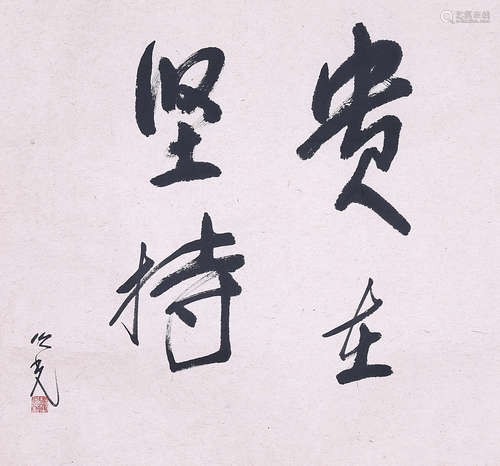 贵在
坚持